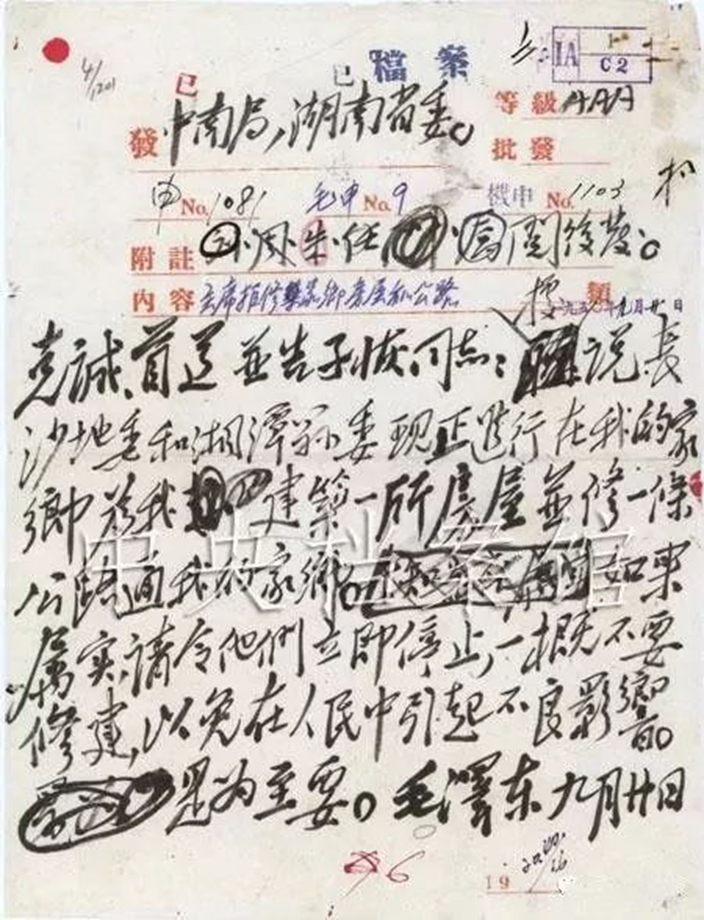 已 已 檔案 IA 1 C2
4/1201
等級 AAA
發 中南局，湖南省委。
批發
申 No. 1081 毛申 No. 9 機申 No. 1103
附註 周 朱 任 閱後发。
内容 主席拒修其家鄉房屋和公路 類
一九五〇年九月廿日
克誠、首道並告子恢同志：据说長
沙地委和湘潭縣委现正進行在我的家
鄉為我建築一所房屋並修一條
公路通我的家鄉。如果
屬实，請令他們立即停止，一概不要
修建，以免在人民中引起不良影響。
是为至要。毛澤东 九月廿日
中央档案馆
6
19